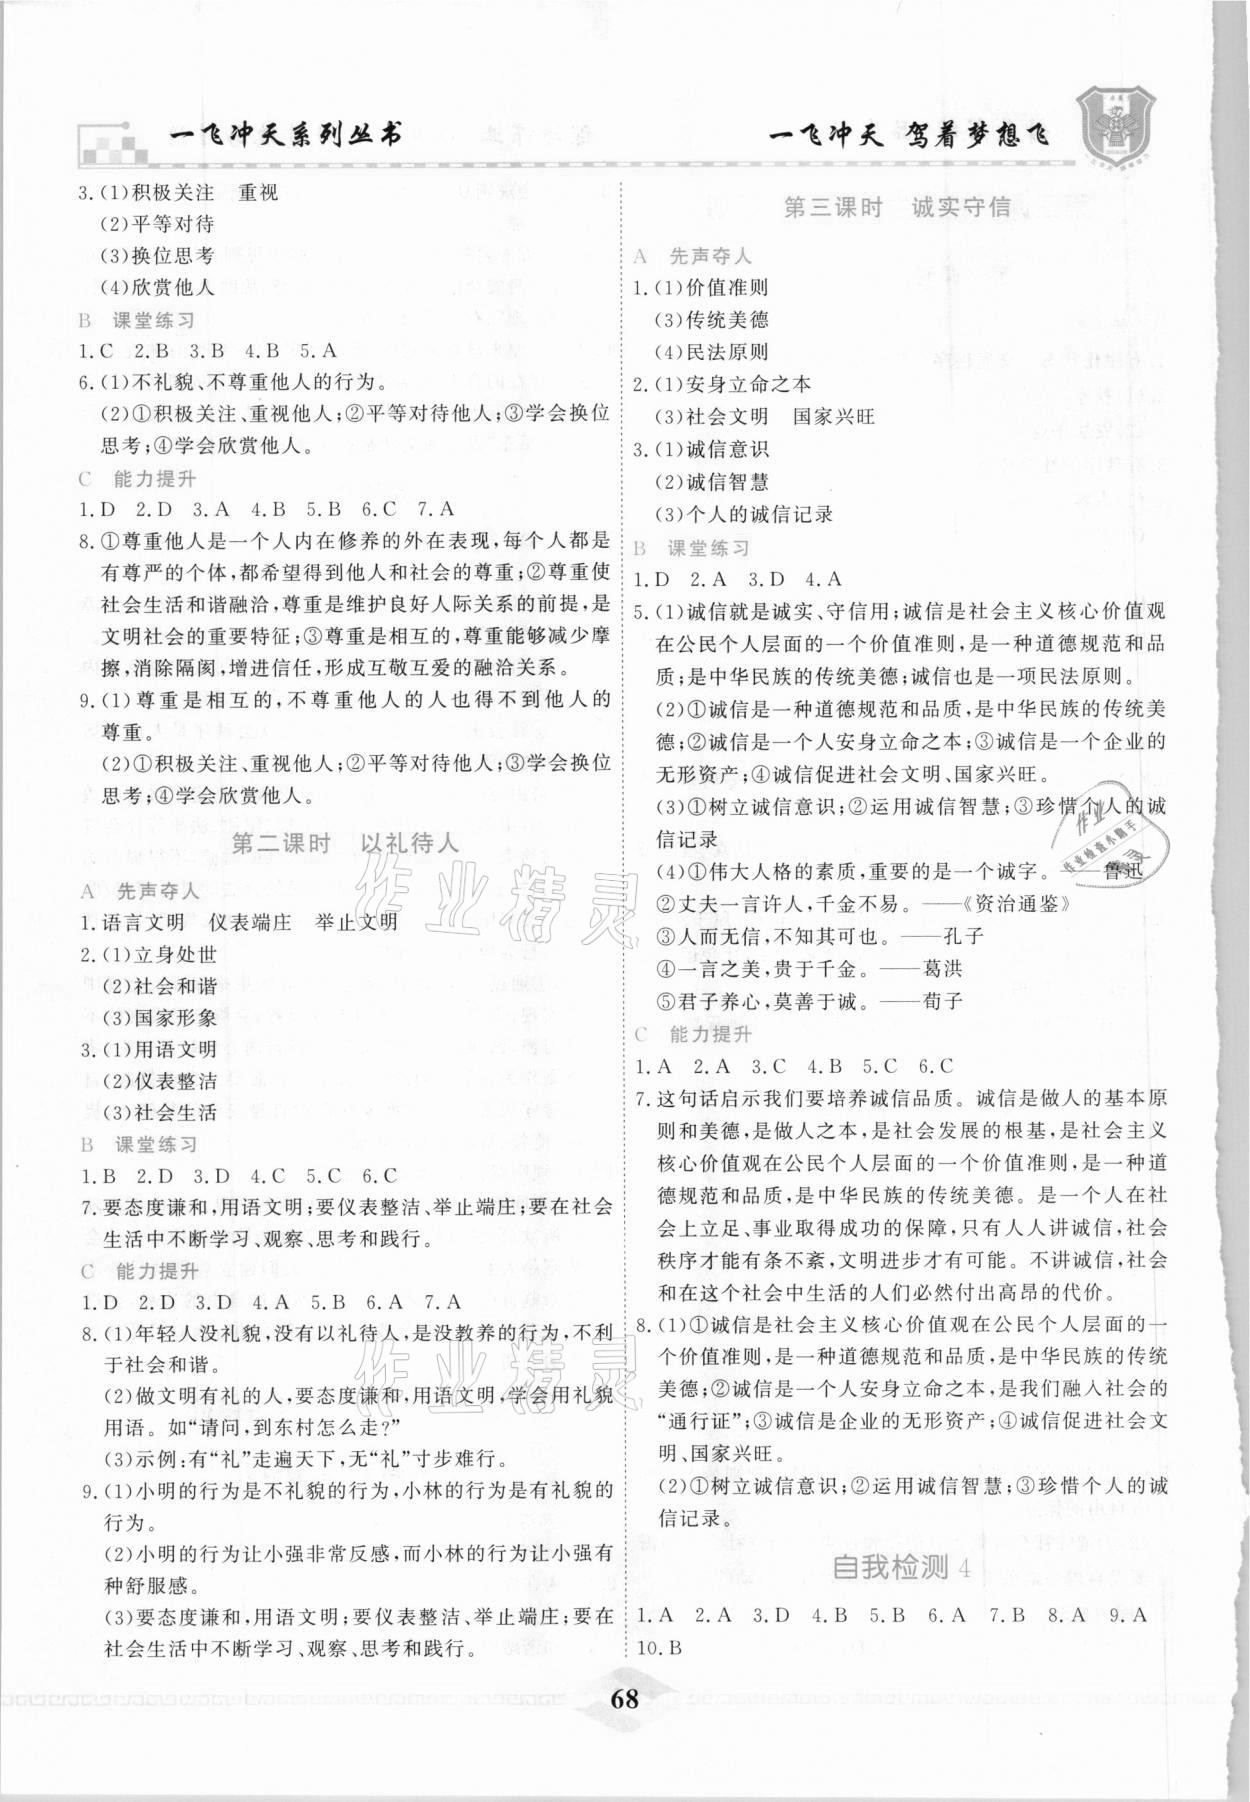 一飞冲天系列丛书
一飞冲天 驾着梦想飞
3.(1)积极关注　重视
(2)平等对待
(3)换位思考
(4)欣赏他人
B　课堂练习
1.C　2.B　3.B　4.B　5.A
6.(1)不礼貌、不尊重他人的行为。
(2)①积极关注、重视他人;②平等对待他人;③学会换位
思考;④学会欣赏他人。
C　能力提升
1.D　2.D　3.A　4.B　5.B　6.C　7.A
8.①尊重他人是一个人内在修养的外在表现,每个人都是
有尊严的个体,都希望得到他人和社会的尊重;②尊重使
社会生活和谐融洽,尊重是维护良好人际关系的前提,是
文明社会的重要特征;③尊重是相互的,尊重能够减少摩
擦,消除隔阂,增进信任,形成互敬互爱的融洽关系。
9.(1)尊重是相互的,不尊重他人的人也得不到他人的
尊重。
(2)①积极关注、重视他人;②平等对待他人;③学会换位
思考;④学会欣赏他人。
第二课时　以礼待人
A　先声夺人
1.语言文明　仪表端庄　举止文明
2.(1)立身处世
(2)社会和谐
(3)国家形象
3.(1)用语文明
(2)仪表整洁
(3)社会生活
B　课堂练习
1.B　2.D　3.D　4.C　5.C　6.C
7.要态度谦和,用语文明;要仪表整洁、举止端庄;要在社会
生活中不断学习、观察、思考和践行。
C　能力提升
1.D　2.D　3.D　4.A　5.B　6.A　7.A
8.(1)年轻人没礼貌,没有以礼待人,是没教养的行为,不利
于社会和谐。
(2)做文明有礼的人,要态度谦和,用语文明,学会用礼貌
用语。如“请问,到东村怎么走?”
(3)示例:有“礼”走遍天下,无“礼”寸步难行。
9.(1)小明的行为是不礼貌的行为,小林的行为是有礼貌的
行为。
(2)小明的行为让小强非常反感,而小林的行为让小强有
种舒服感。
(3)要态度谦和,用语文明;要仪表整洁、举止端庄;要在
社会生活中不断学习、观察、思考和践行。
第三课时　诚实守信
A　先声夺人
1.(1)价值准则
(3)传统美德
(4)民法原则
2.(1)安身立命之本
(3)社会文明　国家兴旺
3.(1)诚信意识
(2)诚信智慧
(3)个人的诚信记录
B　课堂练习
1.D　2.A　3.D　4.A
5.(1)诚信就是诚实、守信用;诚信是社会主义核心价值观
在公民个人层面的一个价值准则,是一种道德规范和品
质;是中华民族的传统美德;诚信也是一项民法原则。
(2)①诚信是一种道德规范和品质,是中华民族的传统美
德;②诚信是一个人安身立命之本;③诚信是一个企业的
无形资产;④诚信促进社会文明、国家兴旺。
(3)①树立诚信意识;②运用诚信智慧;③珍惜个人的诚
信记录
(4)①伟大人格的素质,重要的是一个诚字。——鲁迅
②丈夫一言许人,千金不易。——《资治通鉴》
③人而无信,不知其可也。——孔子
④一言之美,贵于千金。——葛洪
⑤君子养心,莫善于诚。——荀子
C　能力提升
1.A　2.A　3.C　4.B　5.C　6.C
7.这句话启示我们要培养诚信品质。诚信是做人的基本原
则和美德,是做人之本,是社会发展的根基,是社会主义
核心价值观在公民个人层面的一个价值准则,是一种道
德规范和品质,是中华民族的传统美德。是一个人在社
会上立足、事业取得成功的保障,只有人人讲诚信,社会
秩序才能有条不紊,文明进步才有可能。不讲诚信,社会
和在这个社会中生活的人们必然付出高昂的代价。
8.(1)①诚信是社会主义核心价值观在公民个人层面的一
个价值准则,是一种道德规范和品质,是中华民族的传统
美德;②诚信是一个人安身立命之本,是我们融入社会的
“通行证”;③诚信是企业的无形资产;④诚信促进社会文
明、国家兴旺。
(2)①树立诚信意识;②运用诚信智慧;③珍惜个人的诚
信记录。
自我检测 4
1.A　2.A　3.D　4.B　5.B　6.A　7.B　8.A　9.A
10.B
68
作业精灵
作业精灵
作业
作业检查小助手
精灵